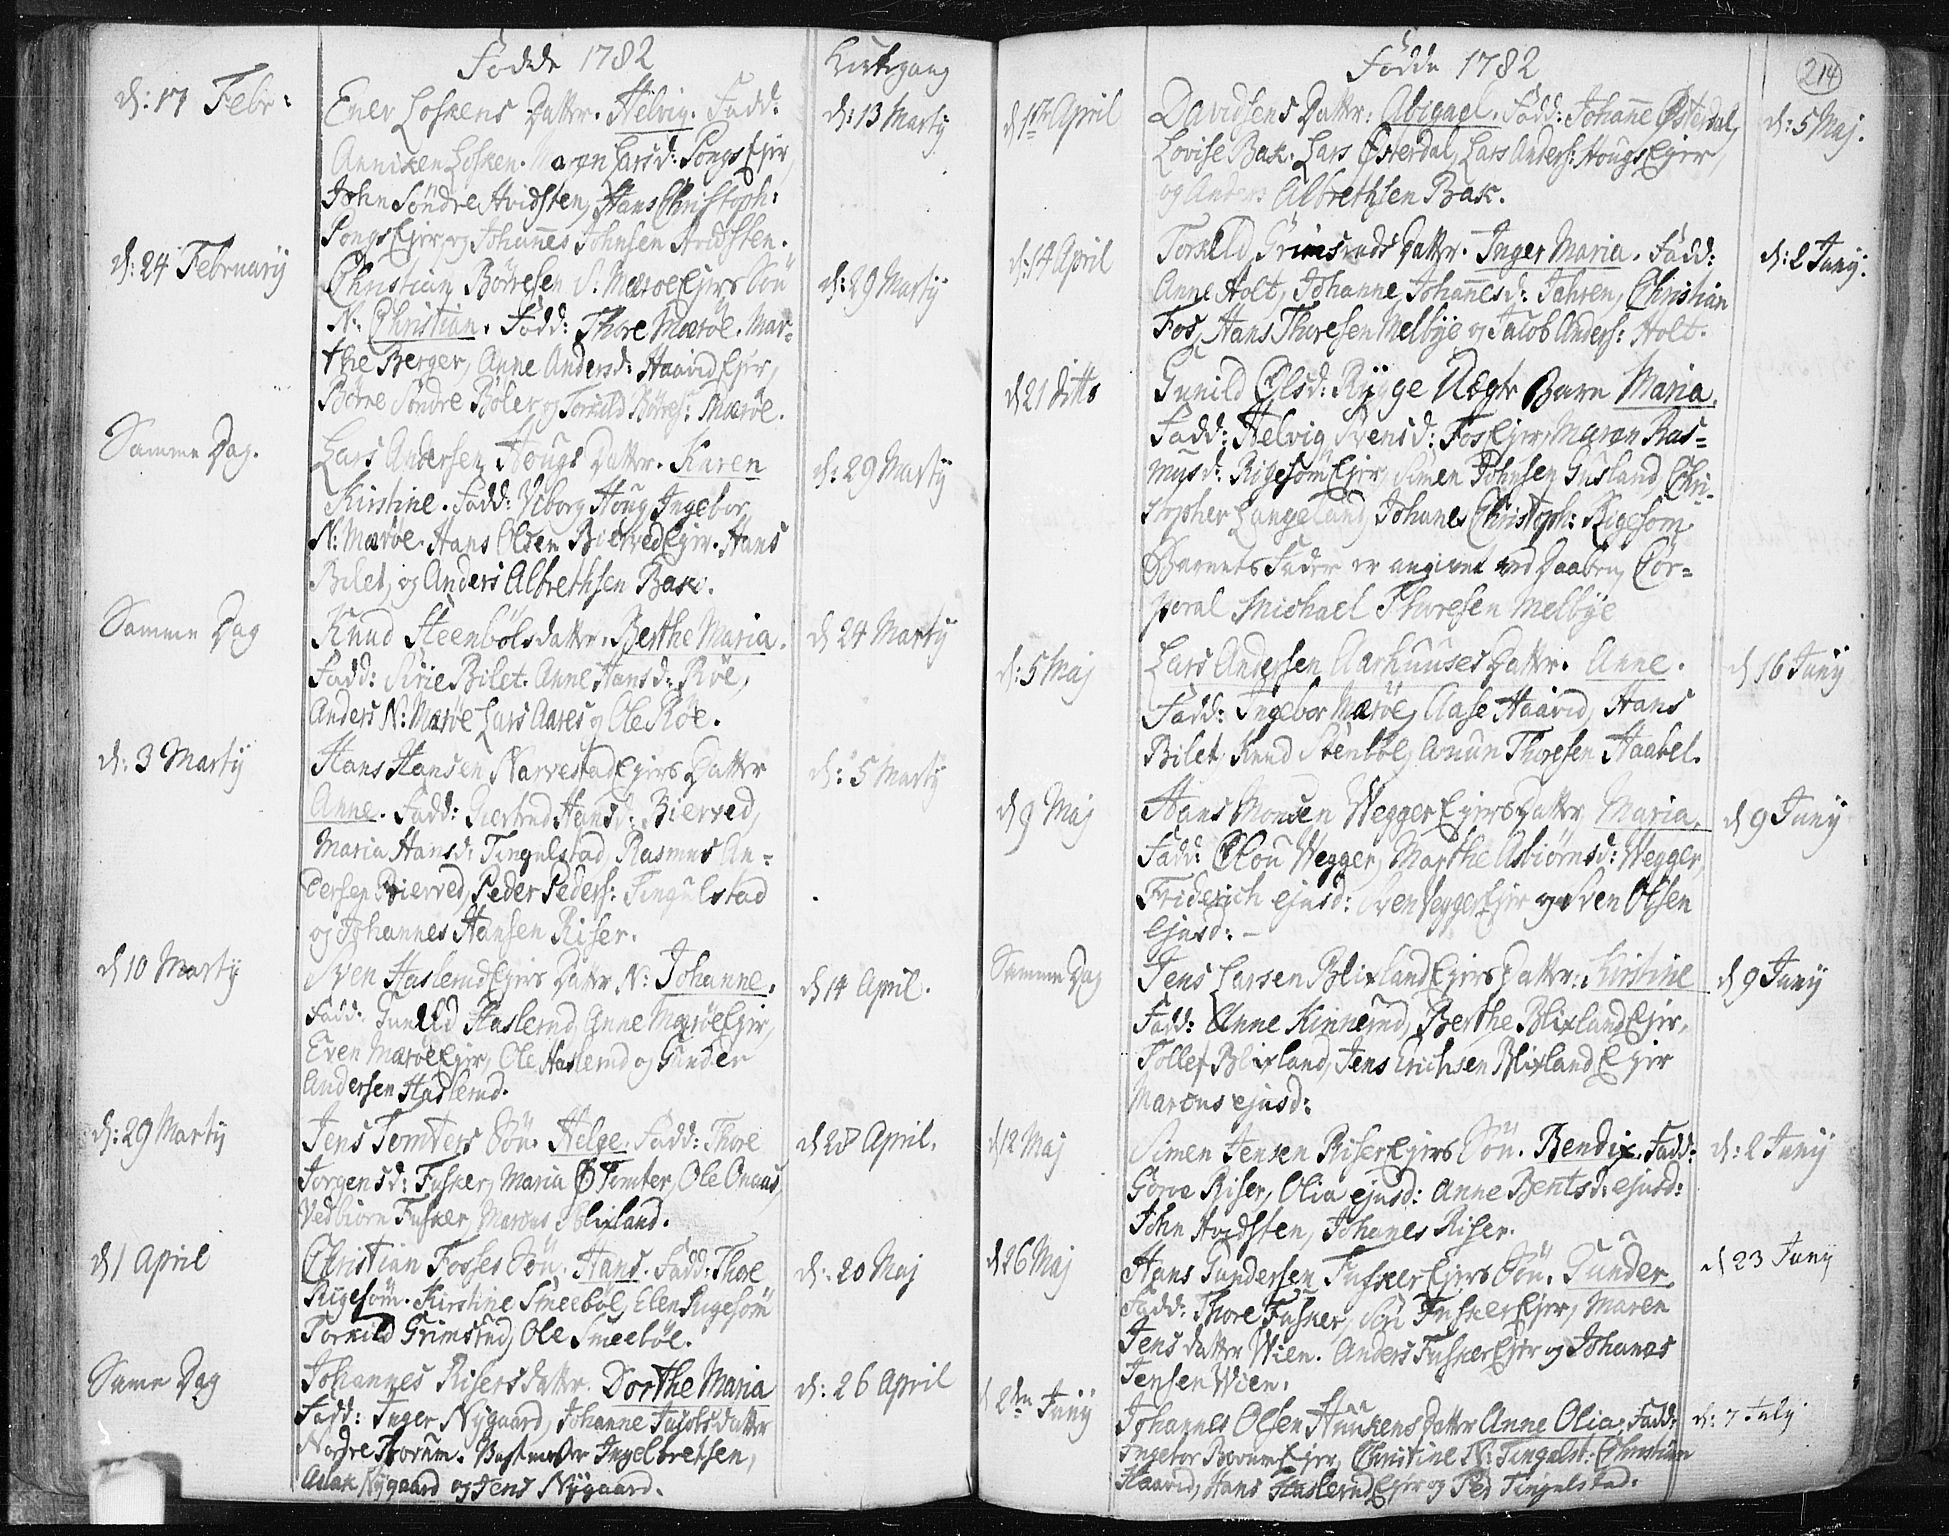 Fødde 1782
Kirkegang
d: 17 Febr:
Ener Loskens Datter. Helvig. Fadd:
d: 13 Martij
Anniken Losken. Maren Larsd: SongsEjer,
John Søndre Hvidsten, Hans Christoph:
SongsEjer, og Johannes Johnsen Hvidsten.
d: 24 Februarij
Christian Børresen S. MærøeEjers Søn
d: 29 Martij
N: Christian. Fadd: Thore Mærøe. Mar-
the Berger, Anne Andersd: HaavidEjer,
Børre Søndre Bøler og Torkild Børres: Mærøe.
Samme Dag.
Lars Andersen Hougs Datter. Karen
d: 29 Martij
Kirstine. Fadd: Viborg Houg Ingebor
N: Mærøe. Hans Olsen BiervedEjer. Hans
Bilet, og Anders Albrethsen Bak.
Samme Dag
Knud Steenbølsdatter. Berthe Maria.
d 24 Martij
Fadd: Sirie Bilet. Anne Hansd: Røe,
Anders N: Mærøe Lars Aares og Ole Røe.
d: 3 Martij
Hans Hansen NarvestadEjers Datter
d: 5 Martij
Anne. Fadd: Giertrud Hansd: Bierved,
Maria Hansd: Tingulstad, Rasmus An-
dersen Bierved, Peder Peders: Tingulstad
og Johannes Hansen Riser.
d 10 Martij
Sven HaslerudEjers Datter N: Johanne.
d 14 April.
Fadd: Gunild Haslerud, Anne MærøeEjer,
Even MærøeEjer, Ole Haslerud og Gunder
Andersen Haslerud.
d: 29 Martij
Jens Tomters Søn. Helge. Fadd: Thore
d 28 April.
Jorgensd: Fusker, Maria Ø Tomter, Ole Onaas,
Vedbiørn Fusker, Marcus Blixland.
d 1 April
Christian Fosses Søn. Hans. Fadd: Thore
d: 20 Maj
Rigesøm. Kirstine Smeebøl, Elen Rugesøm
Torkild Grimsrud, Ole Smeebøl.
Same Dag
Johannes Risers datter. Dorthe Maria
d: 26 April
Fadd: Inger Nygaard, Johanne Jacobsdatter
Nordre Borum. Ingelbrethsen,
Aslak Nygaard og Jens Nygaard.
214
Fødde 1782
d 1ste April
Davidsens Datter: Abigael. Fadd: Johanne Østerdal,
d: 5 Maj.
Lovise Bak. Lars Østerdal, Lars Anders: HougsEjer,
og Anders Albrethsen Bak.
d: 14 April
Torkild Grimsruds Datter. Inger Maria. Fadd:
d: 2 Junij.
Anne Holt, Johanne Johannesd: Jahren, Christian
Fos, Hans Thoresen Melbye og Jacob Anders: Holt.
d 21 ditto
Gunild Olsd: Rygge Uægte Barn Maria.
Fadd: Helvig Svensd: FosEjer, Maren Ras-
musd: RigesømEjer, Simen Johnsen Gusland, Chri-
stopher Langeland, Johanes Christoph: Rigesøm
Barnets Fader er angivet ved Daaben, Cor-
poral Michael Thoresen Melbye
d: 5 Maj
Lars Andersen Aarhuuses Datter. Anne.
d 16 Junij
Fadd: Ingebor Mærøe, Aase Haavid, Hans
Bilet, Knud Stenbøl, Amun Thoresen Haabel.
d 9 Maj
Hans Monsen WeggerEjersDatter Maria.
d 9 Junij
Fadd: Olou Wegger, Marthe Asbiørnsd: Wegger,
Friderich ejusd: Sven VeggerEjer og Sven Olsen
Ejusd: -
Samme Dag
Jens Larsen BlixlandEjers Datter: Kirstine
d 9 Junij
Fadd: Anne Kinnerud, Berthe BlixlandEjer,
Tollef Blixland, Jens Erichsen BlixlandEjer
Marcus ejusd:
d 12 Maj
Simen Jensen RiserEjers Søn. Bendix. Fadd:
d: 2 Junij
Gorve Riser, Olia ejusd: Anne Bentsd: ejusd:
John Hvidsten, Johanes Riser.
d 26 Maj
Hans Gundersen FuskerEjers Søn. Gunder.
d 23 Junij
Fadd: Thore Fusker, Siri FuskerEjer, Maren
Jens datter Wien. Anders FuskerEjer og Johanes
Jensen Wien.
d 2den Junij
Johannes Olsen Huukens datter Anne Olia. Fadd:
d: 7 July
Ingebor BorumEjer, Christine N: Tingulst: Christian
Haavid, Hans HaslerudEjer og Ped Tingulstad.